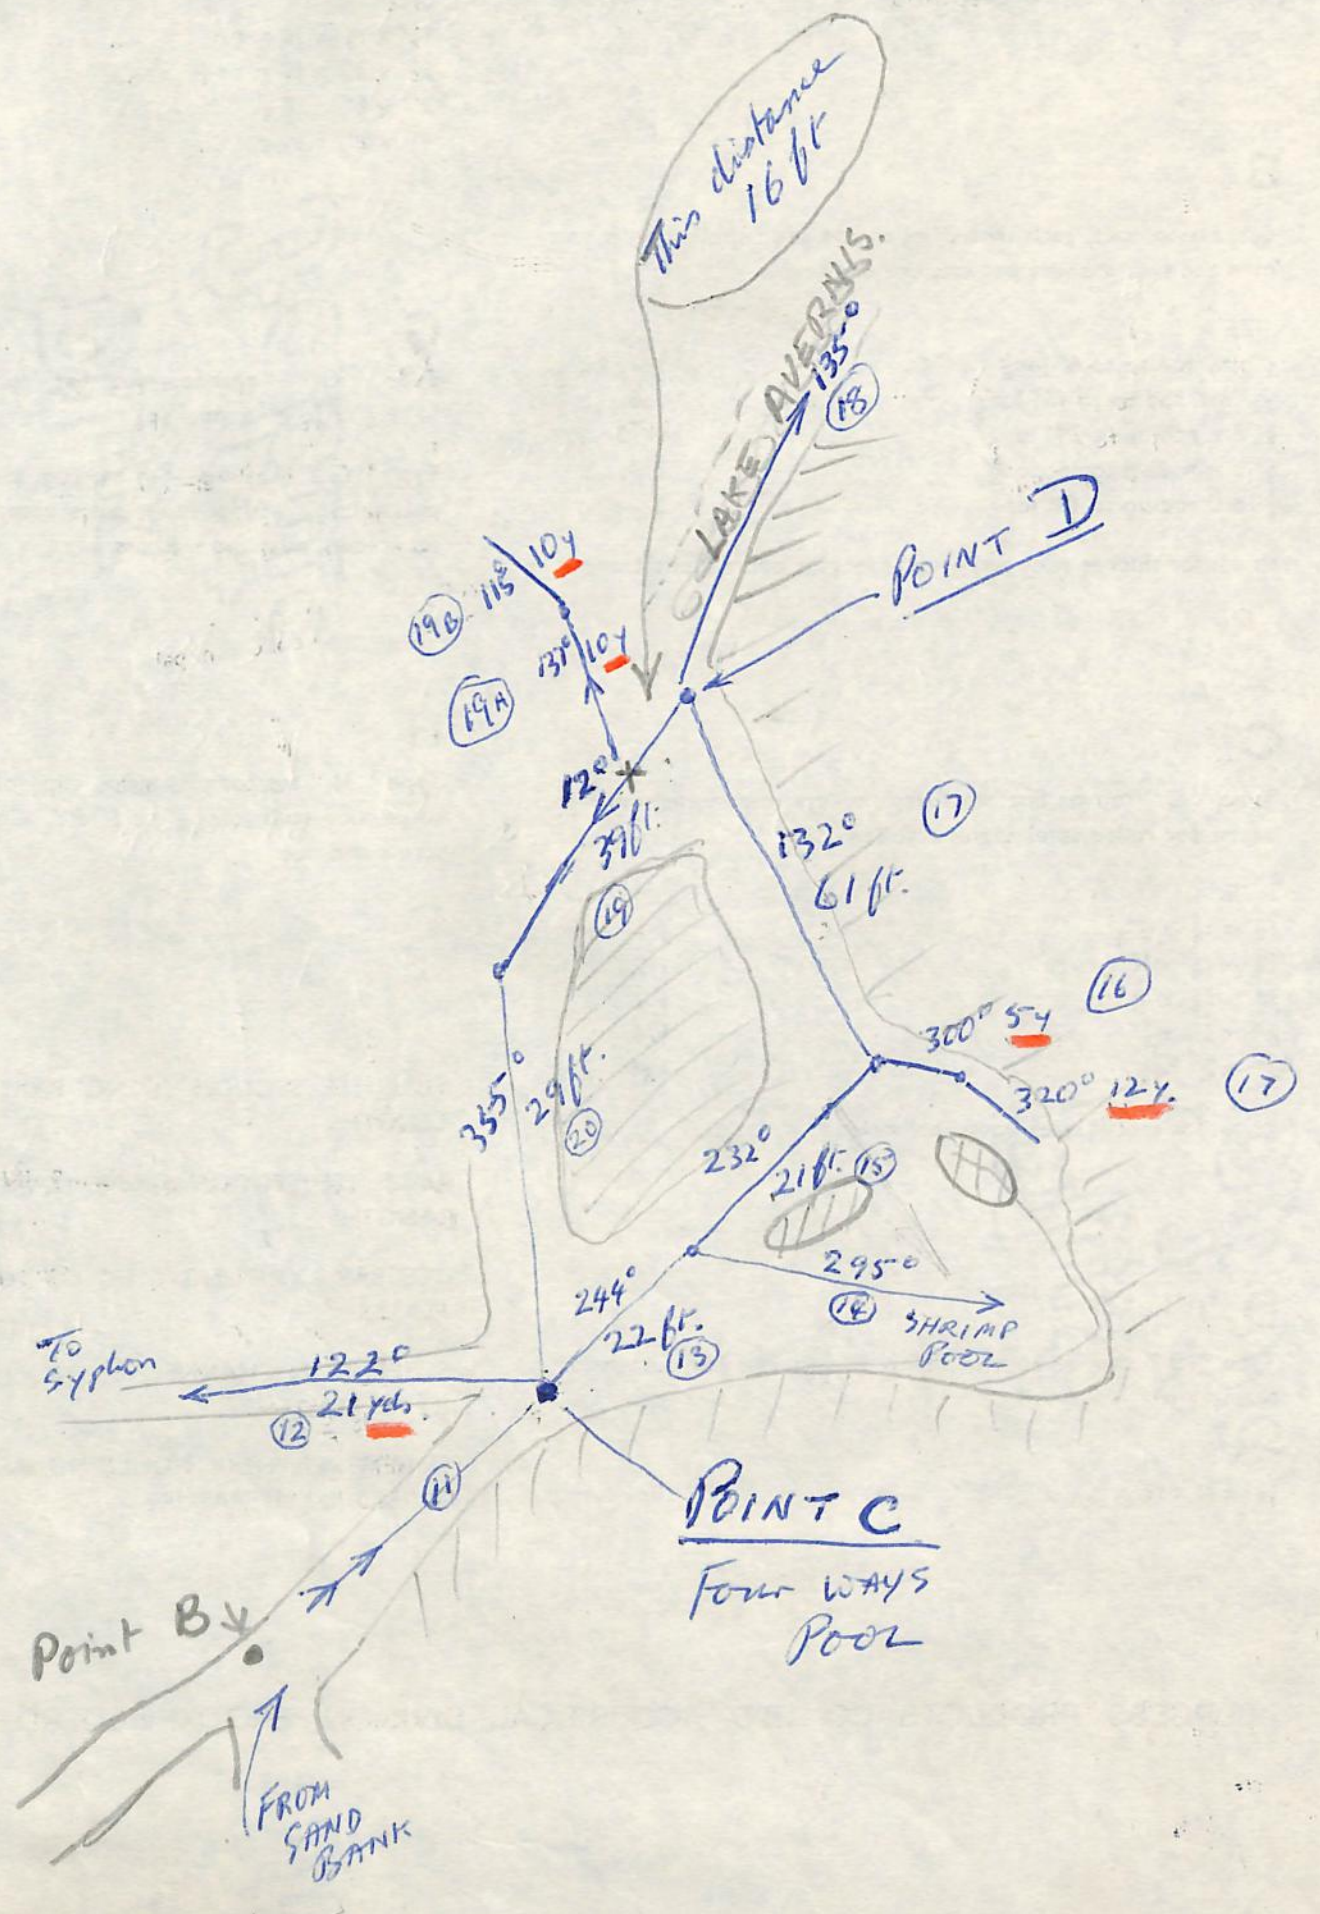 This distance
16 ft
LAKE AVERNUS.
135°
18
POINT D
10y
115°
19B
10y
137°
19A
12°
39ft.
19
132°
17
61 ft.
16
300° 5y
320° 12y.
17
355°
29ft.
20
232°
21ft. 15
295°
14
SHRIMP
POOL
244°
22ft.
13
To
Syphon
122°
21 yds.
12
11
POINT C
FOUR WAYS
POOL
Point B
FROM
SAND
BANK